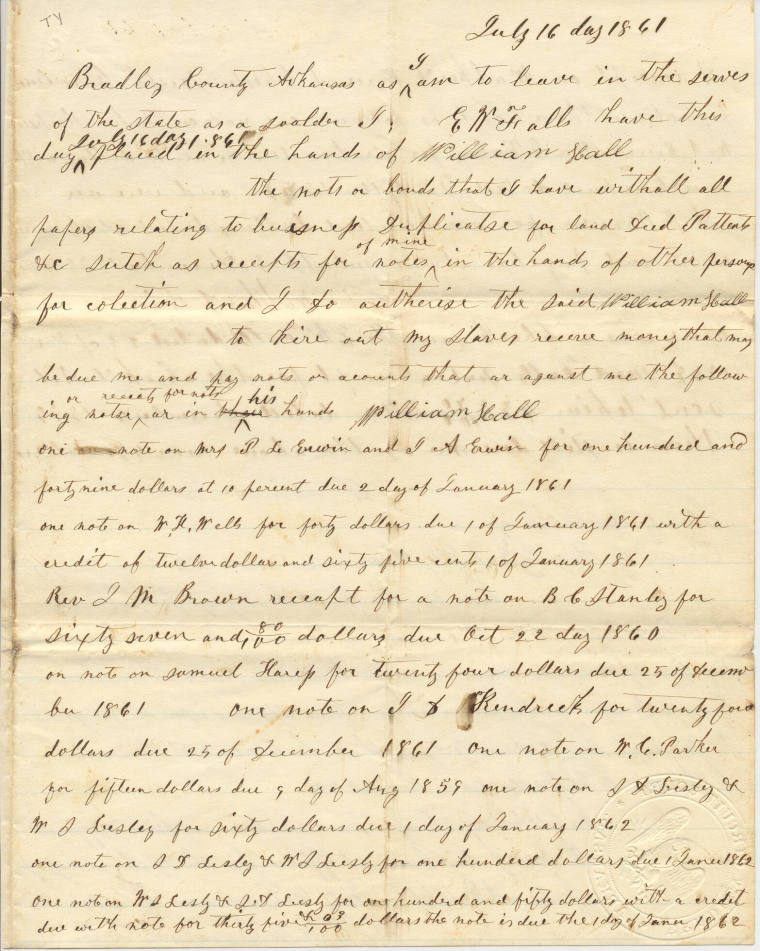 TY
July 16 day 1861
Bradley County Arkansas as y am to leave in the serves
of the state as a soalder I, E W Falls have this
day July 16 day 1861 placed in the hands of William Hall
the nots or bonds that I have withall all
papers relating to buisness duplicatse for land deed Pattents
&c sutch as receipts for notes of mine in the hands of other persons
for colection and I do autherise the said William Hall
to hire out my slaves receve money that may
be due me and pay nots or acounts that ar against me the follow
ing notse or receipts for nots ar in their his hands William Hall
one note on Mrs P L Erwin and J A Erwin for one hunderd and
forty nine dollars at 10 percent due 2 day of January 1861
one note on W. H. Wells for forty dollars due 1 of January 1861 with a
credit of twelve dollars and sixty five cents 1 of January 1861
Rev J M Brown receapt for a note on B C Stanley for
sixty seven and 80/100 dollars due Oct 22 day 1860
on note on Samuel Haress for twenty four dollars due 25 of decem
ber 1861 one note on J D Kendreck for twenty four
dollars due 25 of december 1861 one note on W. C. Parker
for fifteen dollars due 9 day of Aug 1859 one note on J D Lesley &
W J Lesley for sixty dollars due 1 day of January 1862
one note on J D Lesley & W J Lesly for one hunderd dollars due 1 Janu 1862
one not on W J Lesly & J D Lesly for one hundred and fifty dollars with a credit
due with note for thirty five & 03/100 dollars the note is due the 1 day of Janu 1862